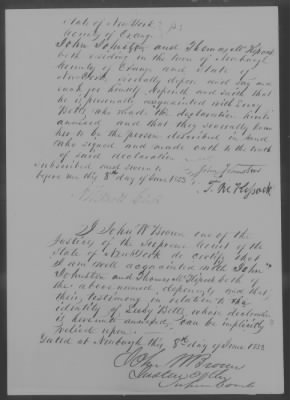 State of New York
County of Orange } ss
John Johnston and Thomas McKissock
both residing in the town of Newburgh
County of Orange and State of
New York severally depose and say and
each for himself deposeth and saith that
he is personally acquainted with Lucy
Betts who made the declaration hereto
annexed and that they severally know
her to be the person described in and
who signed and made oath to the truth
of said declaration
Subscribed and sworn to
before me this 8th day of June 1853
John Johnston
T. McKissock
I John W Brown one of the
Justices of the Supreme Court of the
State of New York do certify that
I am well acquainted with John
Johnston and Thomas McKissock both of
the above named deponents and that
their testimony in relation to the
identity of Lucy Betts whose declaration
is hereunto annexed can be implicitly
relied upon.
Dated at Newburgh this 8th day of June 1853
John W Brown
Justice of the
Supreme Court